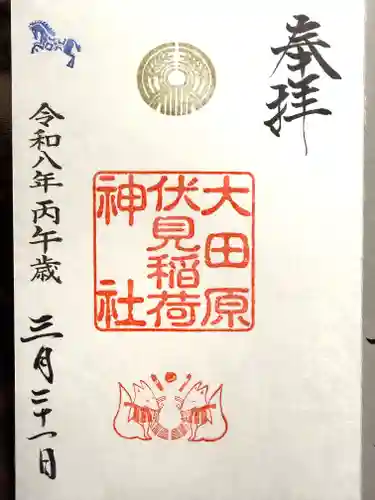 奉拝
大田原
伏見稲荷
神社
令和八年丙午歳
三月三十一日